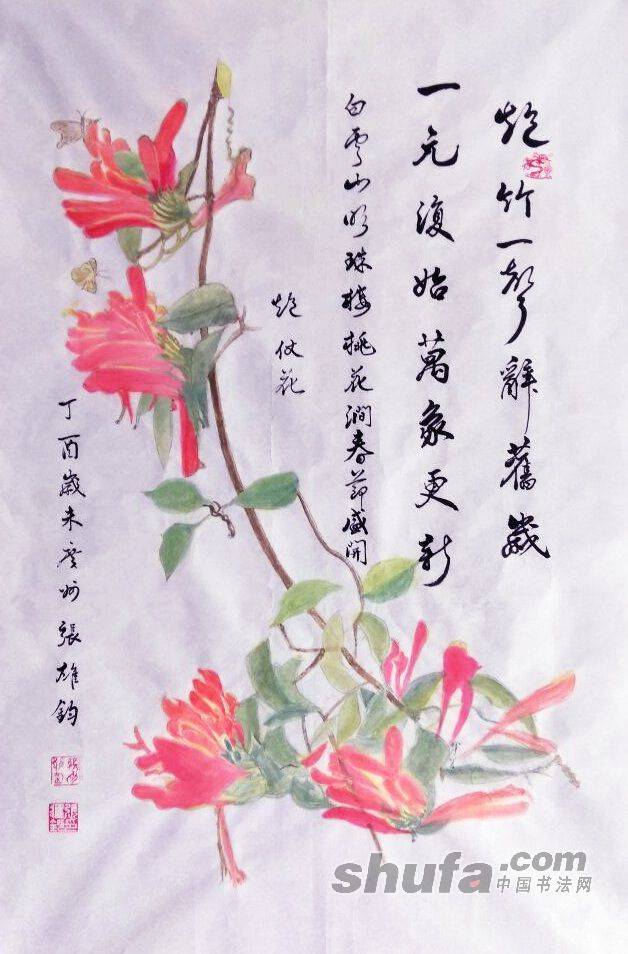 炮竹一聲辭舊歲
一元復始萬象更新
白雲山明珠樓桃花澗春節盛開
炮仗花
丁酉歲末廣州張雄鈞
shufa.com
中国书法网